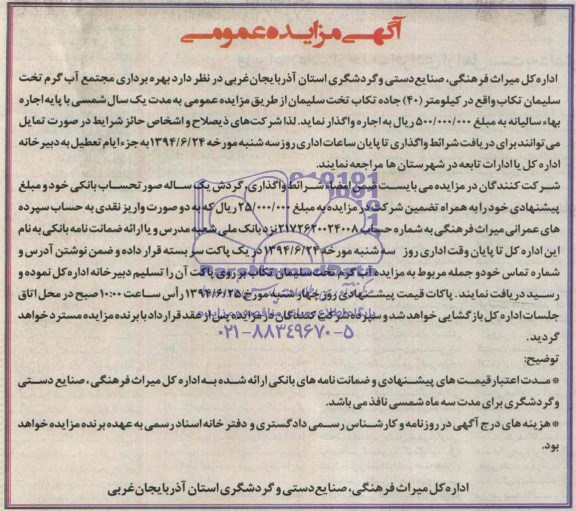 آگهی مزایده عمومی
اداره کل میراث فرهنگی، صنایع دستی و گردشگری استان آذربایجان غربی در نظر دارد بهره برداری مجتمع آب گرم تخت
سلیمان تکاب واقع در کیلومتر (۴۰) جاده تکاب تخت سلیمان از طریق مزایده عمومی به مدت یک سال شمسی با پایه اجاره
بهاء سالیانه به مبلغ ۵۰۰/۰۰۰/۰۰۰ ریال به اجاره واگذار نماید. لذا شرکت های ذیصلاح و اشخاص حائز شرایط در صورت تمایل
می توانند برای دریافت شرایط واگذاری تا پایان ساعات اداری روز سه شنبه مورخه ۱۳۹۴/۶/۲۴ به جز ایام تعطیل به دبیر خانه
اداره کل یا ادارات تابعه در شهرستان ها مراجعه نمایند.
شرکت کنندگان در مزایده می بایست ضمن امضاء شرائط واگذاری، گردش یک ساله صورتحساب بانکی خود و مبلغ
پیشنهادی خود را به همراه تضمین شرکت در مزایده به مبلغ ۲۵/۰۰۰/۰۰۰ ریال که به دو صورت واریز نقدی به حساب سپرده
های عمرانی میراث فرهنگی به شماره حساب ۲۱۷۲۶۲۰۰۲۴۰۰۸ نزد بانک ملی شعبه مدرس و یا ارائه ضمانت نامه بانکی به نام
این اداره کل تا پایان وقت اداری روز سه شنبه مورخه ۱۳۹۴/۶/۲۴ در یک پاکت سر بسته قرار داده و ضمن نوشتن آدرس و
شماره تماس خود و جمله مربوط به مزایده آب گرم تخت سلیمان تکاب بر روی پاکت آن را تسلیم دبیر خانه اداره کل نموده و
رسید دریافت نمایند. پاکات قیمت پیشنهادی روز چهارشنبه مورخ ۱۳۹۴/۶/۲۵ رأس ساعت ۱۰:۰۰ صبح در محل اتاق
جلسات اداره کل بازگشایی خواهد شد و سپرده شرکت کنندگان در مزایده پس از عقد قرارداد با برنده مزایده مسترد خواهد
گردید.
۰۲۱-۸۸۳۴۹۶۷۰-۵
توضیح:
* مدت اعتبار قیمت های پیشنهادی و ضمانت نامه های بانکی ارائه شده به اداره کل میراث فرهنگی، صنایع دستی
و گردشگری برای مدت سه ماه شمسی نافذ می باشد.
* هزینه های درج آگهی در روزنامه و کارشناس رسمی دادگستری و دفتر خانه اسناد رسمی به عهده برنده مزایده خواهد
بود.
اداره کل میراث فرهنگی، صنایع دستی و گردشگری استان آذربایجان غربی